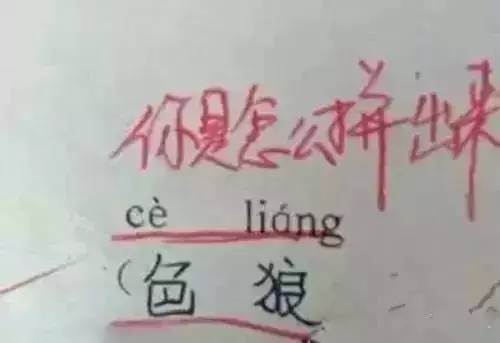 你是怎么拼出来
cè liáng
(色 狼